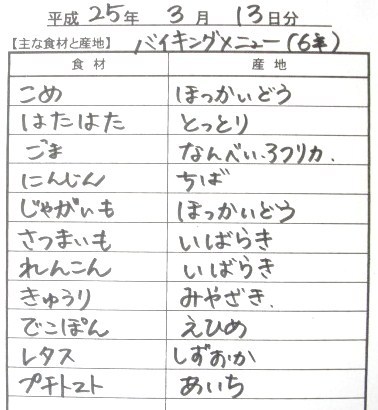 平成 25年 3月 13日分
【主な食材と産地】 バイキングメニュー(6年)
食材 産地
こめ ほっかいどう
はたはた とっとり
ごま なんべい.アフリカ.
にんじん ちば
じゃがいも ほっかいどう
さつまいも いばらき
れんこん いばらき
きゅうり みやざき.
でこぽん えひめ
レタス しずおか
プチトマト あいち